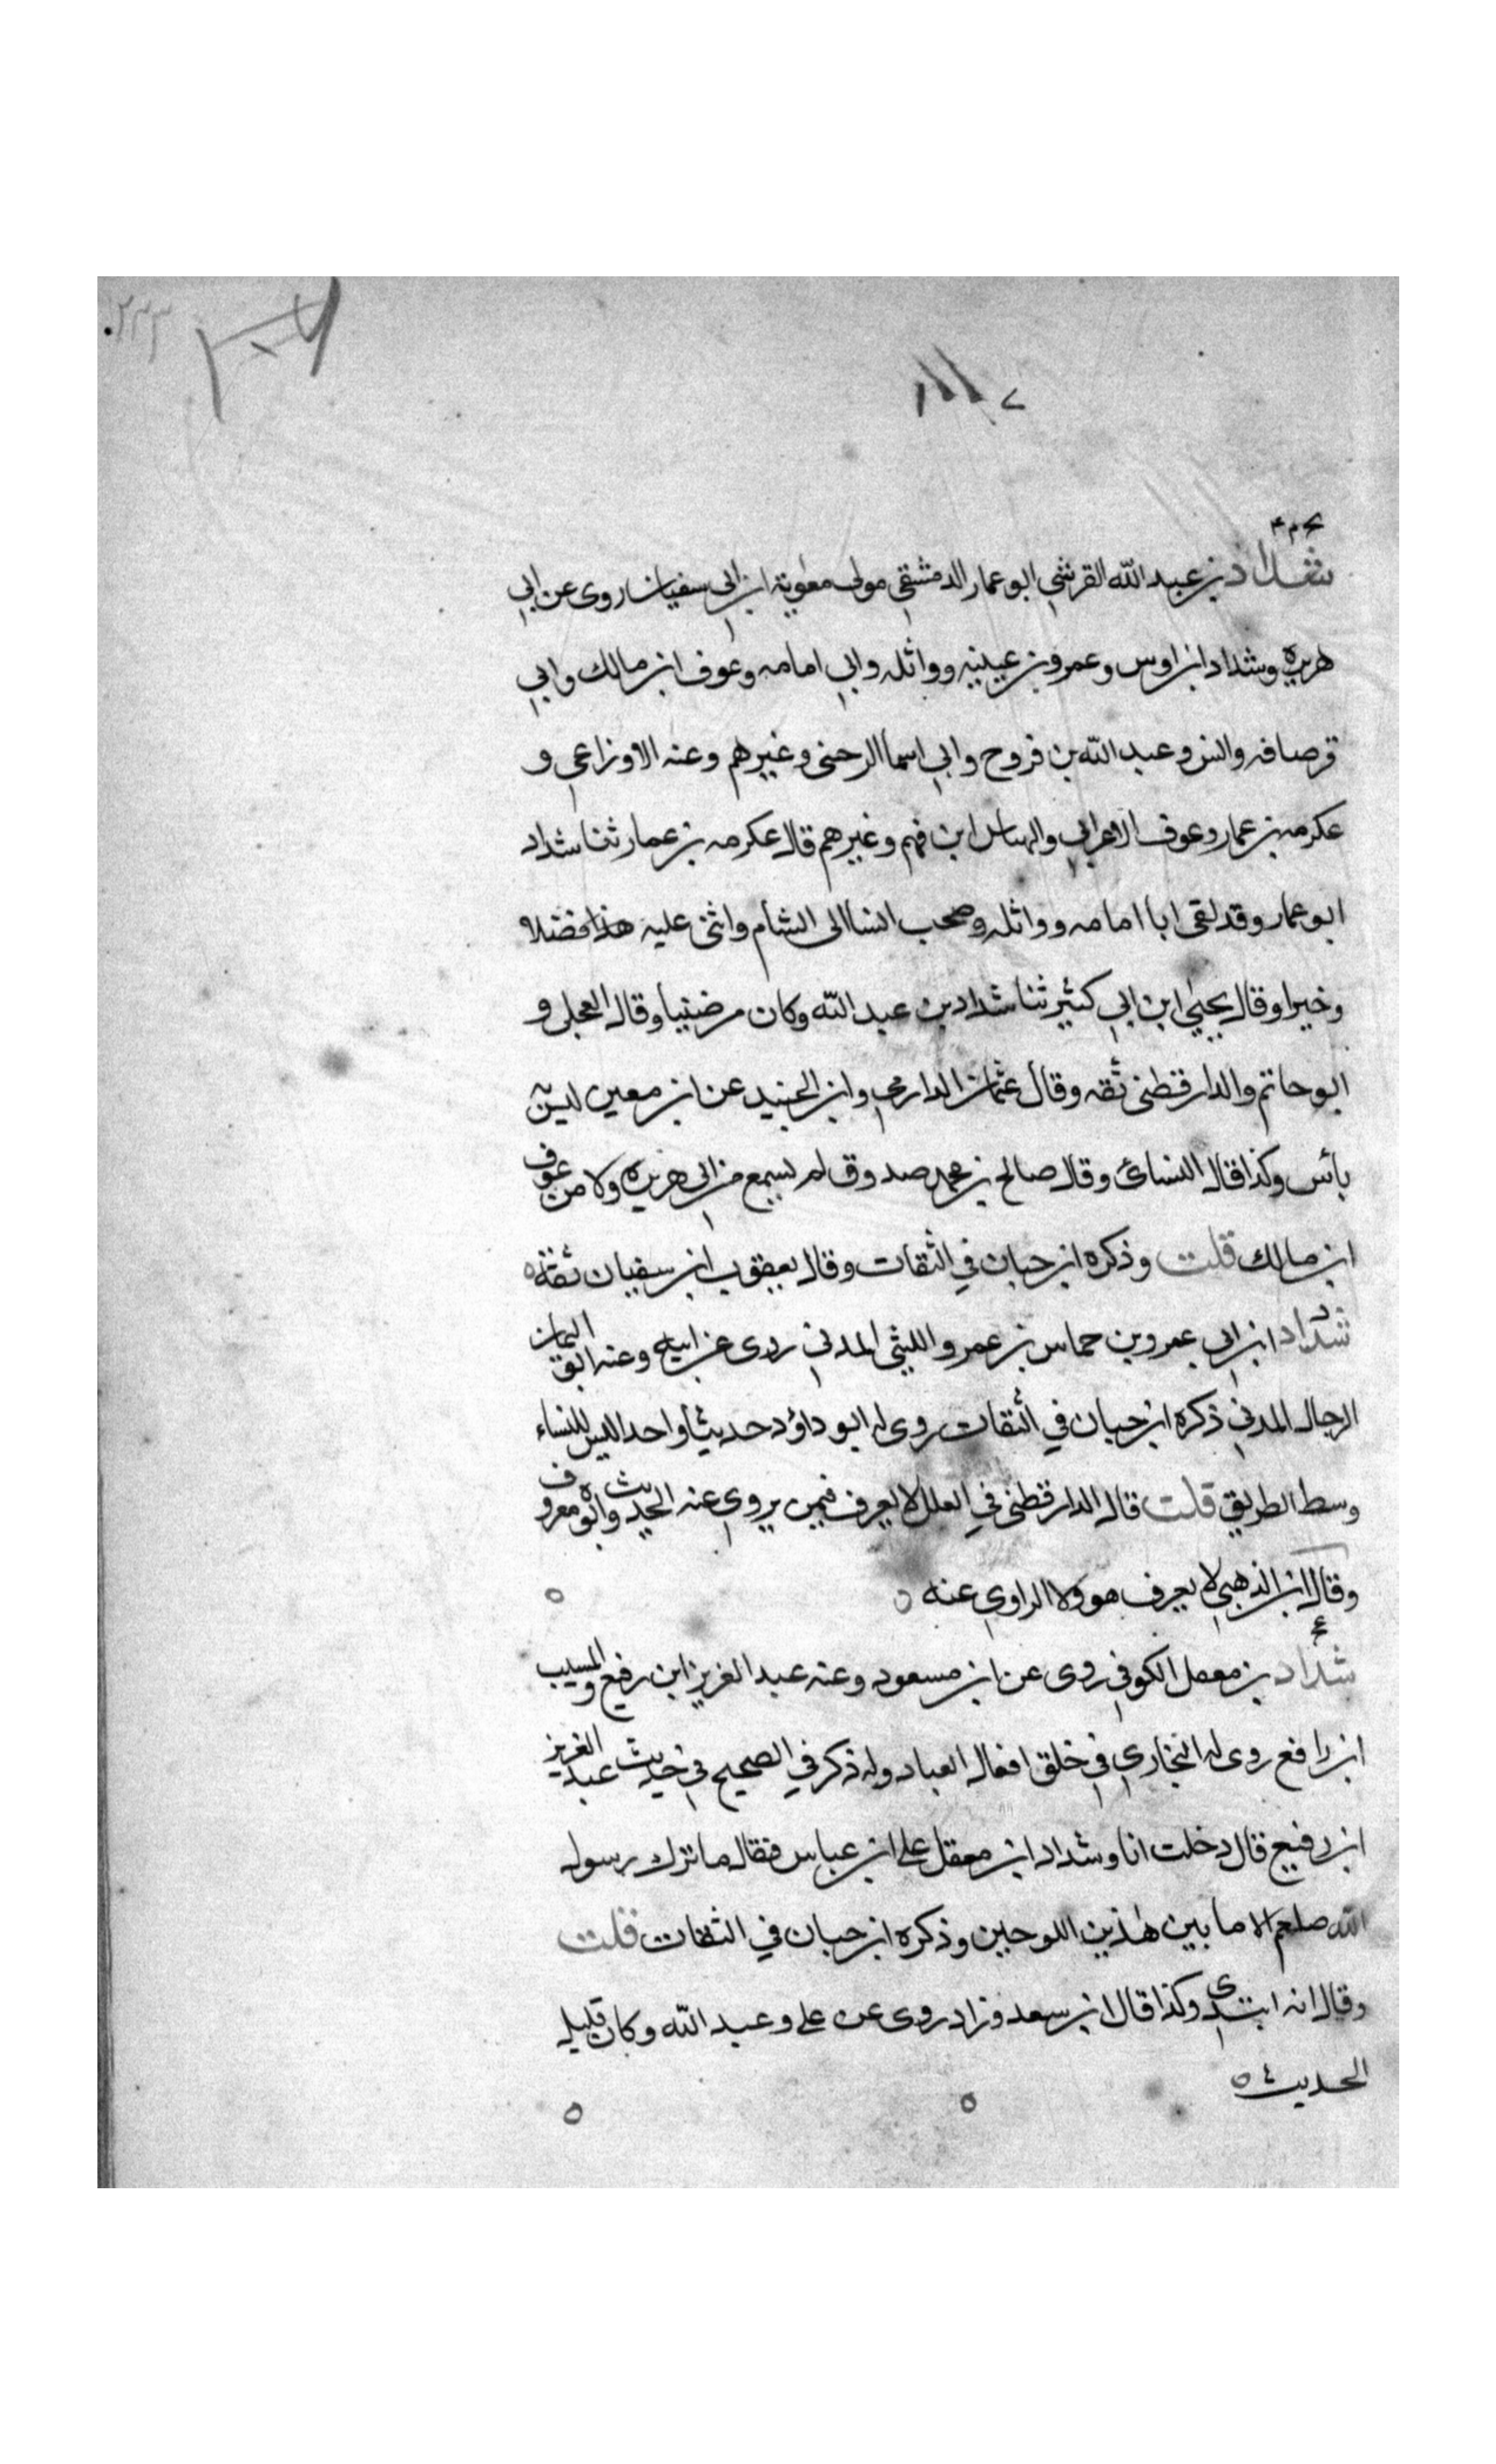 بخ م ۴
شداد بن عبد الله القرشي ابو عمار الدمشقي مولى معٰوية ابن ابي سفيان روى عن ابي
هريره وشداد ابن اوس وعمرو بن عبينه وواثله وابي امامه وعوف ابن مالك وابي
قرصافه وانس وعبد الله بن فروح وابي اسما الرحبى وغيرهم وعنه الاوزاعي و
عكرمه بن عمار وعوف الاعرابي والنهاس ابن فهم وغيرهم قال عكرمه بن عمار ثنا شداد
ابو عمار وقد لقى ابا امامه وواثله وصحب انسا الى الشام واثنى عليه هذا فضلا
وخيرا وقال يحيٰي ابن ابي كثير ثنا شداد بن عبد الله وكان مرضييا وقال العجلى و
ابو حاتم والدارقطنى ثقه وقال عثمان الدارمي وابن الجنيد عن ابن معين ليس به
بأس وكذا قال النسائ وقال صالح بن محمد صدوق لم يسمع من ابي هريره ولا من عوف
ابن مالك قلت وذكره ابن حبان في الثقات وقال يعقوب ابن سفيان ثقة ه
د
شداد ابن ابي عمرو بن حماس بن عمرو الليثي المدني روى عن ابيه وعنه ابو اليمان
الرجال المدني ذكره ابن حبان في الثقات روى له ابو داؤد حديثا واحدا ليس للنساء
وسط الطريق قلت قال الدارقطنى في العلل لا يعرف فيمن يروي عنه الحديث وابوه معروف
وقال ابن الذهبي لا يعرف هو ولا الراوي عنه ه ه
عخ
شداد بن معقل الكوفي روى عن ابن مسعود وعنه عبد العزيز ابن رفيع والمسيب
ابن رافع روى له البخاري في خلق افعال العباد وله ذكر في الصحيح في حديث عبد العزيز
ابن رفيع قال دخلت انا وشداد ابن معقل على ابن عباس فقال ما ترك رسول
الله صلعم الا ما بين هٰذين اللوحين وذكره ابن حبان في الثقات قلت
وقال انه وكذا قال ابن سعد وزاد روى عن على وعبد الله وكان قليل
الحديث ه ه ه